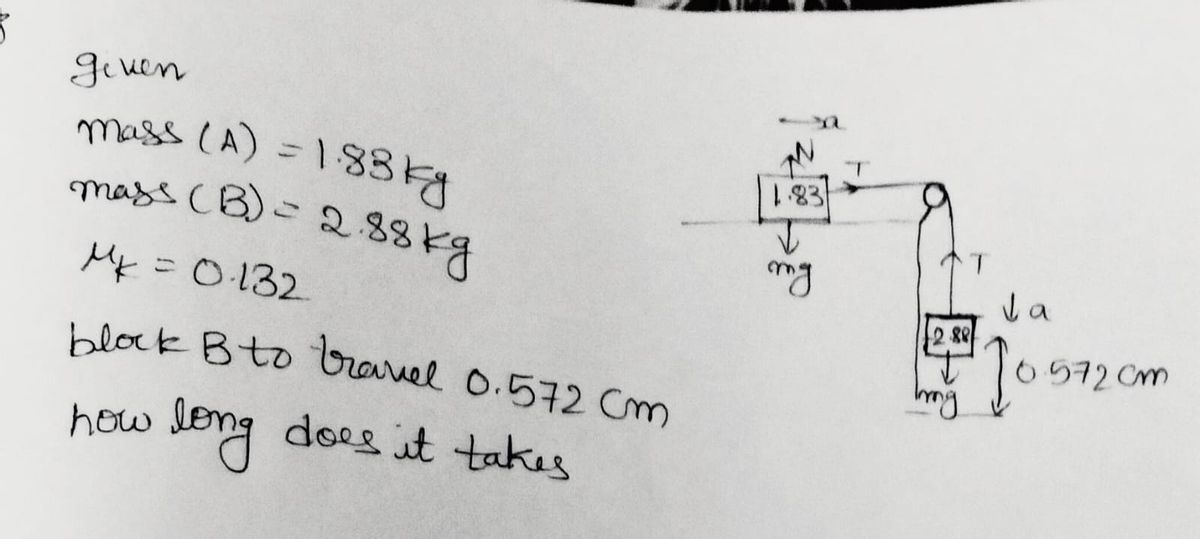 given
mass (A) = 1.83 kg
mass (B) = 2.88 kg
μk = 0.132
block B to travel 0.572 cm
how long does it takes
→a
N
T
1.83
mg
T
↓a
2.88
mg
0.572 cm